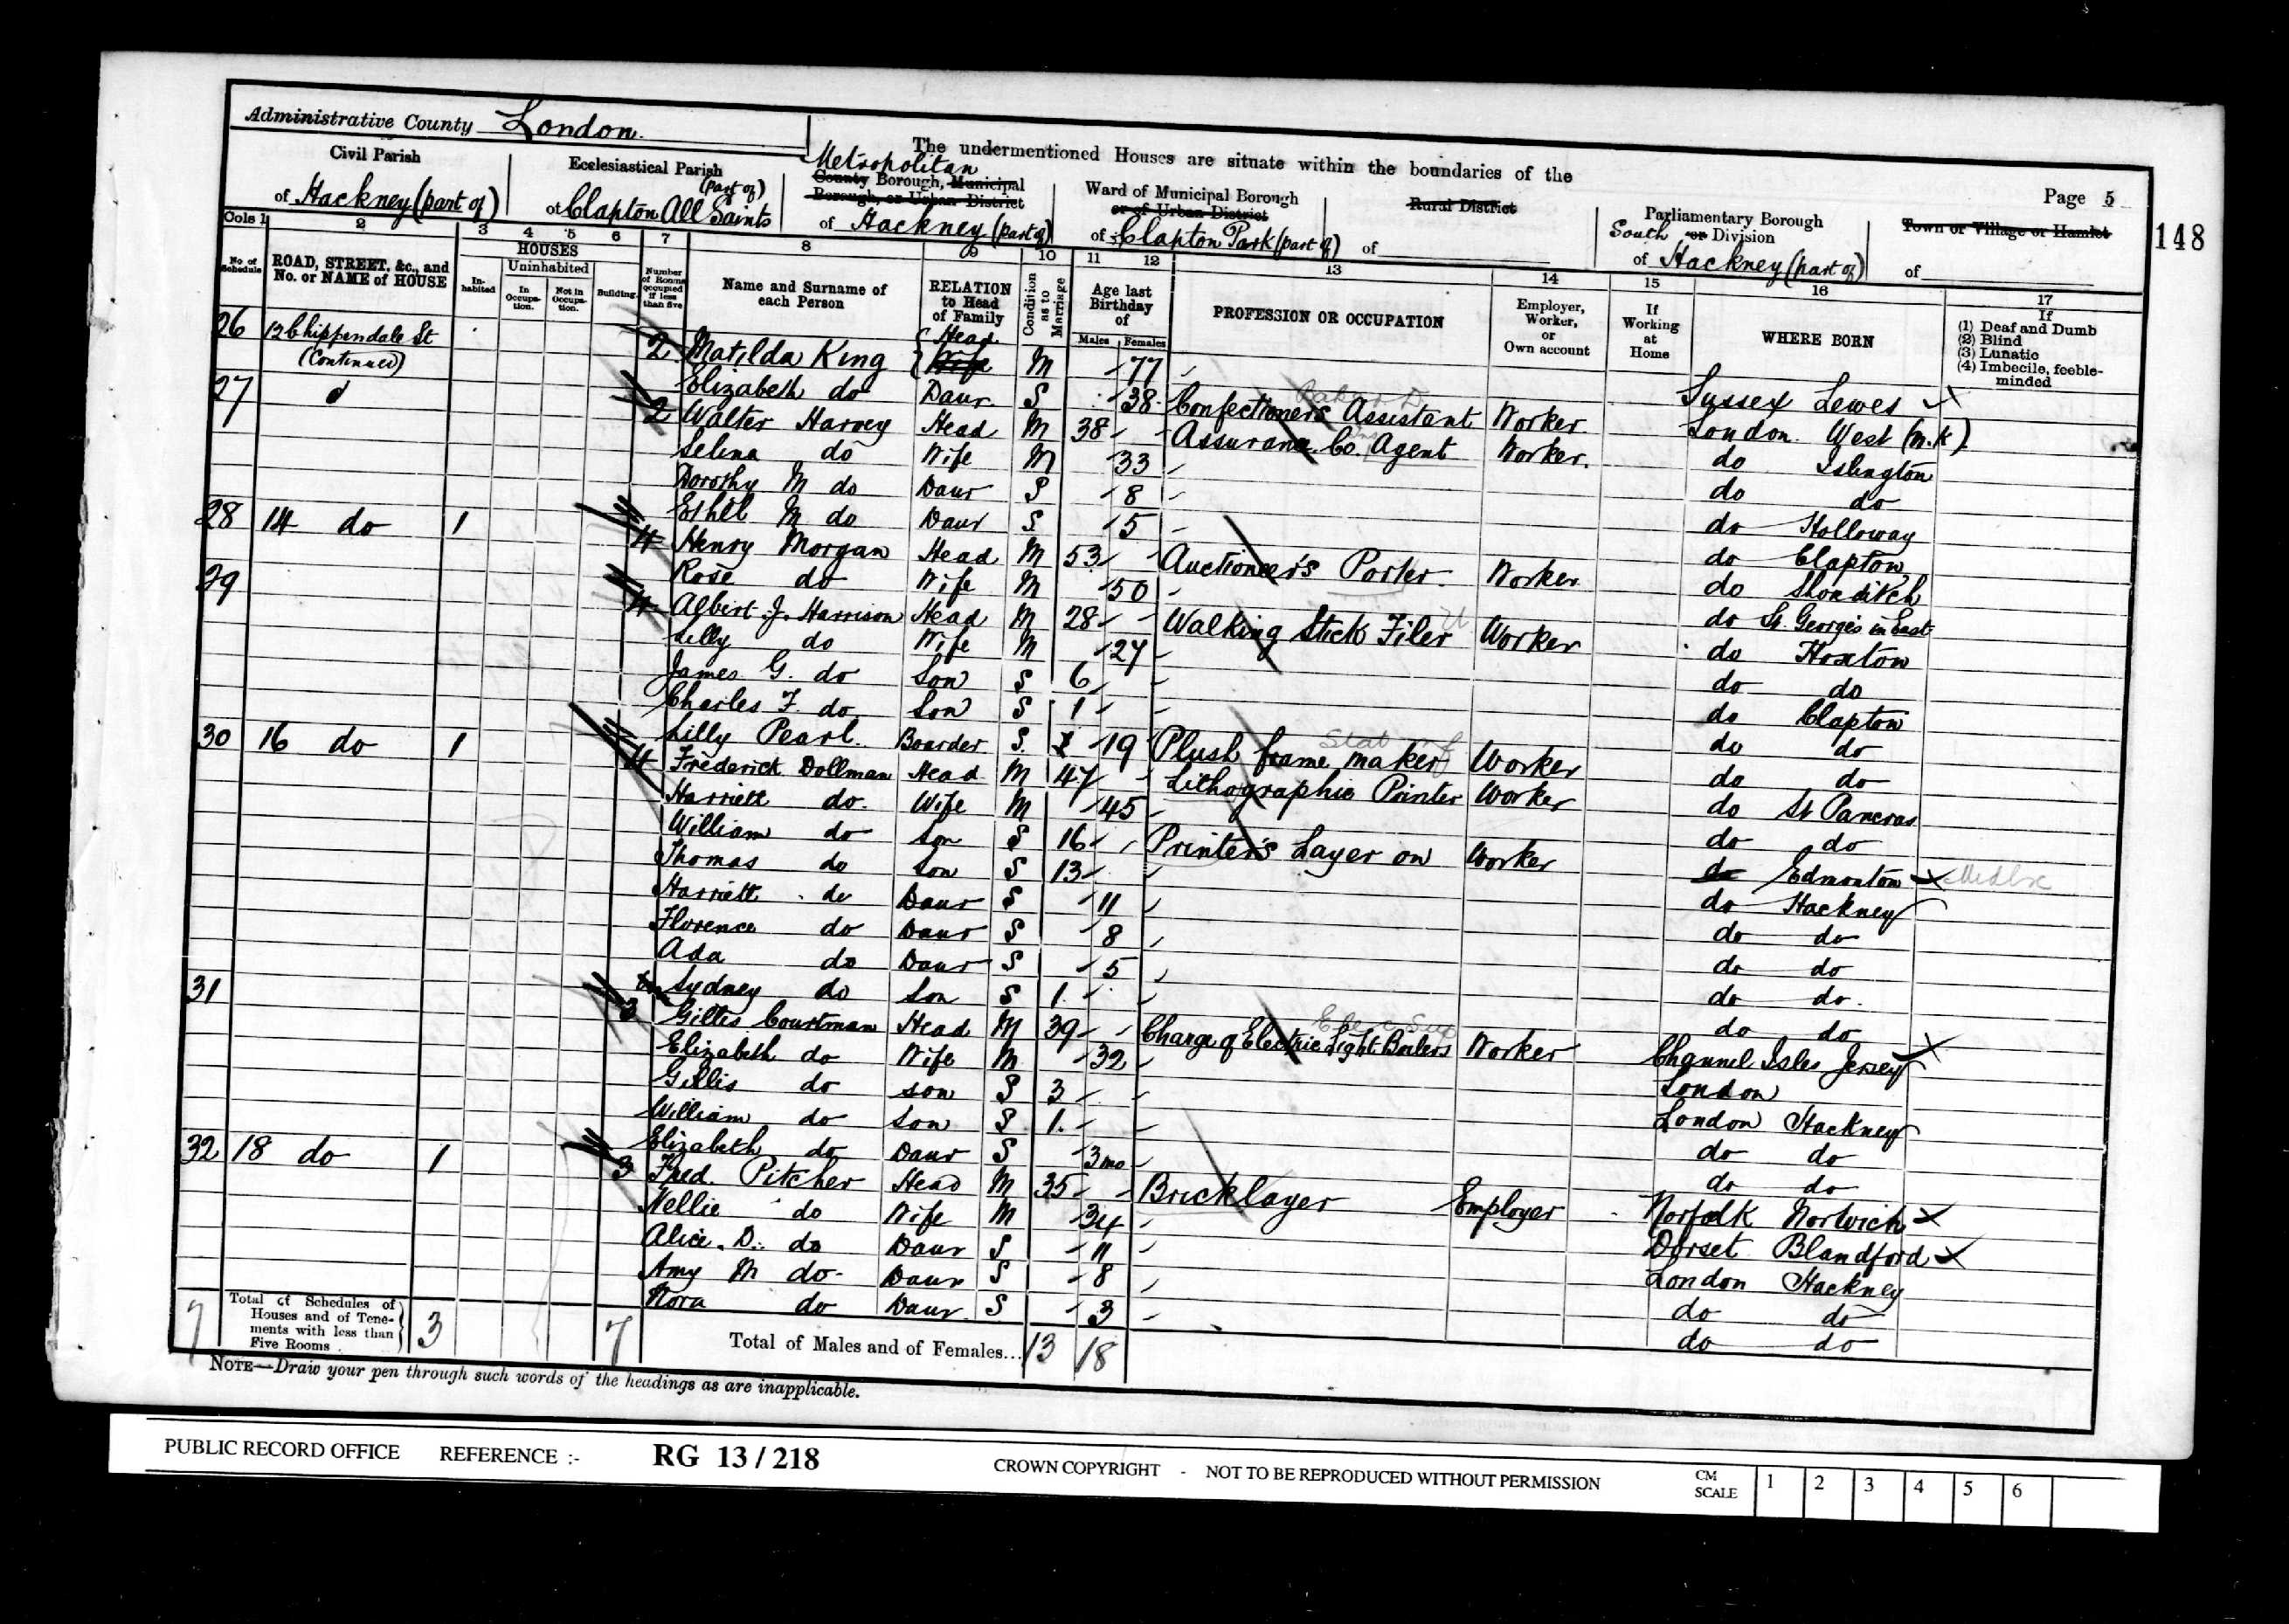 Administrative County London
The undermentioned Houses are situate within the boundaries of the
Civil Parish
of Hackney (part of)
Ecclesiastical Parish
(part of)
of Clapton All Saints
Metropolitan
County Borough, Municipal
Borough, or Urban District
of Hackney (part of)
Ward of Municipal Borough
or of Urban District
of Clapton Park (part of)
Rural District
of
Parliamentary Borough
South or Division
of Hackney (part of)
Town or Village or Hamlet
of
Page 5
148
Cols 1 2 3 4 5 6 7 8 9 10 11 12 13 14 15 16 17
No. of Schedule
ROAD, STREET, &c., and No. or NAME of HOUSE
HOUSES
Inhabited
Uninhabited
In Occupation.
Not in Occupation.
Building.
Number of Rooms occupied if less than five
Name and Surname of each Person
RELATION to Head of Family
Condition as to Marriage
Age last Birthday of
Males Females
PROFESSION OR OCCUPATION
Employer, Worker, or Own account
If Working at Home
WHERE BORN
If
(1) Deaf and Dumb
(2) Blind
(3) Lunatic
(4) Imbecile, feeble-minded
26 12 Chippendale St (Continued) 2 Matilda King Head Wife M 77 Sussex Lewes
Elizabeth do Daur S 38 Confectioners Assistant Worker London West (n.k)
27 d 2 Walter Harvey Head M 38 Assurance Co. Agent Worker do Islington
Selina do Wife M 33 do do
Dorothy M do Daur S 8 do Holloway
Ethel M do Daur S 5 do Clapton
28 14 do 1 4 Henry Morgan Head M 53 Auctioneer's Porter Worker do Shoreditch
Rose do Wife M 50 do St. George's in East
29 4 Albert J. Harrison Head M 28 Walking Stick Filer Worker do Hoxton
Lilly do Wife M 27 do do
James G. do Son S 6 do Clapton
Charles F. do Son S 1 do do
Lilly Pearl Boarder S 19 Plush frame maker Worker do do
30 16 do 1 4 Frederick Dollman Head M 47 Lithographic Printer Worker do St Pancras
Harriett do Wife M 45 do do
William do Son S 16 Printer's Layer on Worker do Edmonton
Thomas do Son S 13 do Hackney
Harriett do Daur S 11 do do
Florence do Daur S 8 do do
Ada do Daur S 5 do do
Sydney do Son S 1 do do
31 3 Gilles Courtman Head M 39 Charge of Electric Light Boilers Worker Channel Isles Jersey
Elizabeth do Wife M 32 London
Gillis do son S 3 London Hackney
William do Son S 1 do do
Elizabeth do Daur S 3 mo do do
32 18 do 1 3 Fred. Pitcher Head M 35 Bricklayer Employer Norfolk Norwich
Nellie do Wife M 34 Dorset Blandford
Alice. D. do Daur S 11 London Hackney
Amy M do Daur S 8 do do
Nora do Daur S 3 do do
7 Total of Schedules of Houses and of Tenements with less than Five Rooms 3 7 Total of Males and of Females... 13 18
NOTE—Draw your pen through such words of the headings as are inapplicable.
PUBLIC RECORD OFFICE REFERENCE :- RG 13 / 218 CROWN COPYRIGHT - NOT TO BE REPRODUCED WITHOUT PERMISSION CM SCALE 1 2 3 4 5 6